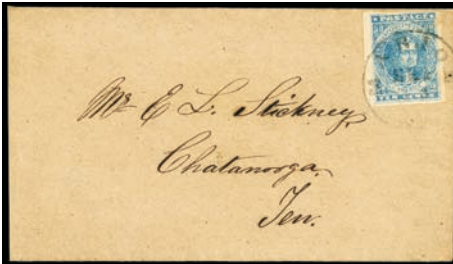 POSTAGE
TEN CENTS
Mr. E L. Stickney,
Chatanooga,
Ten.